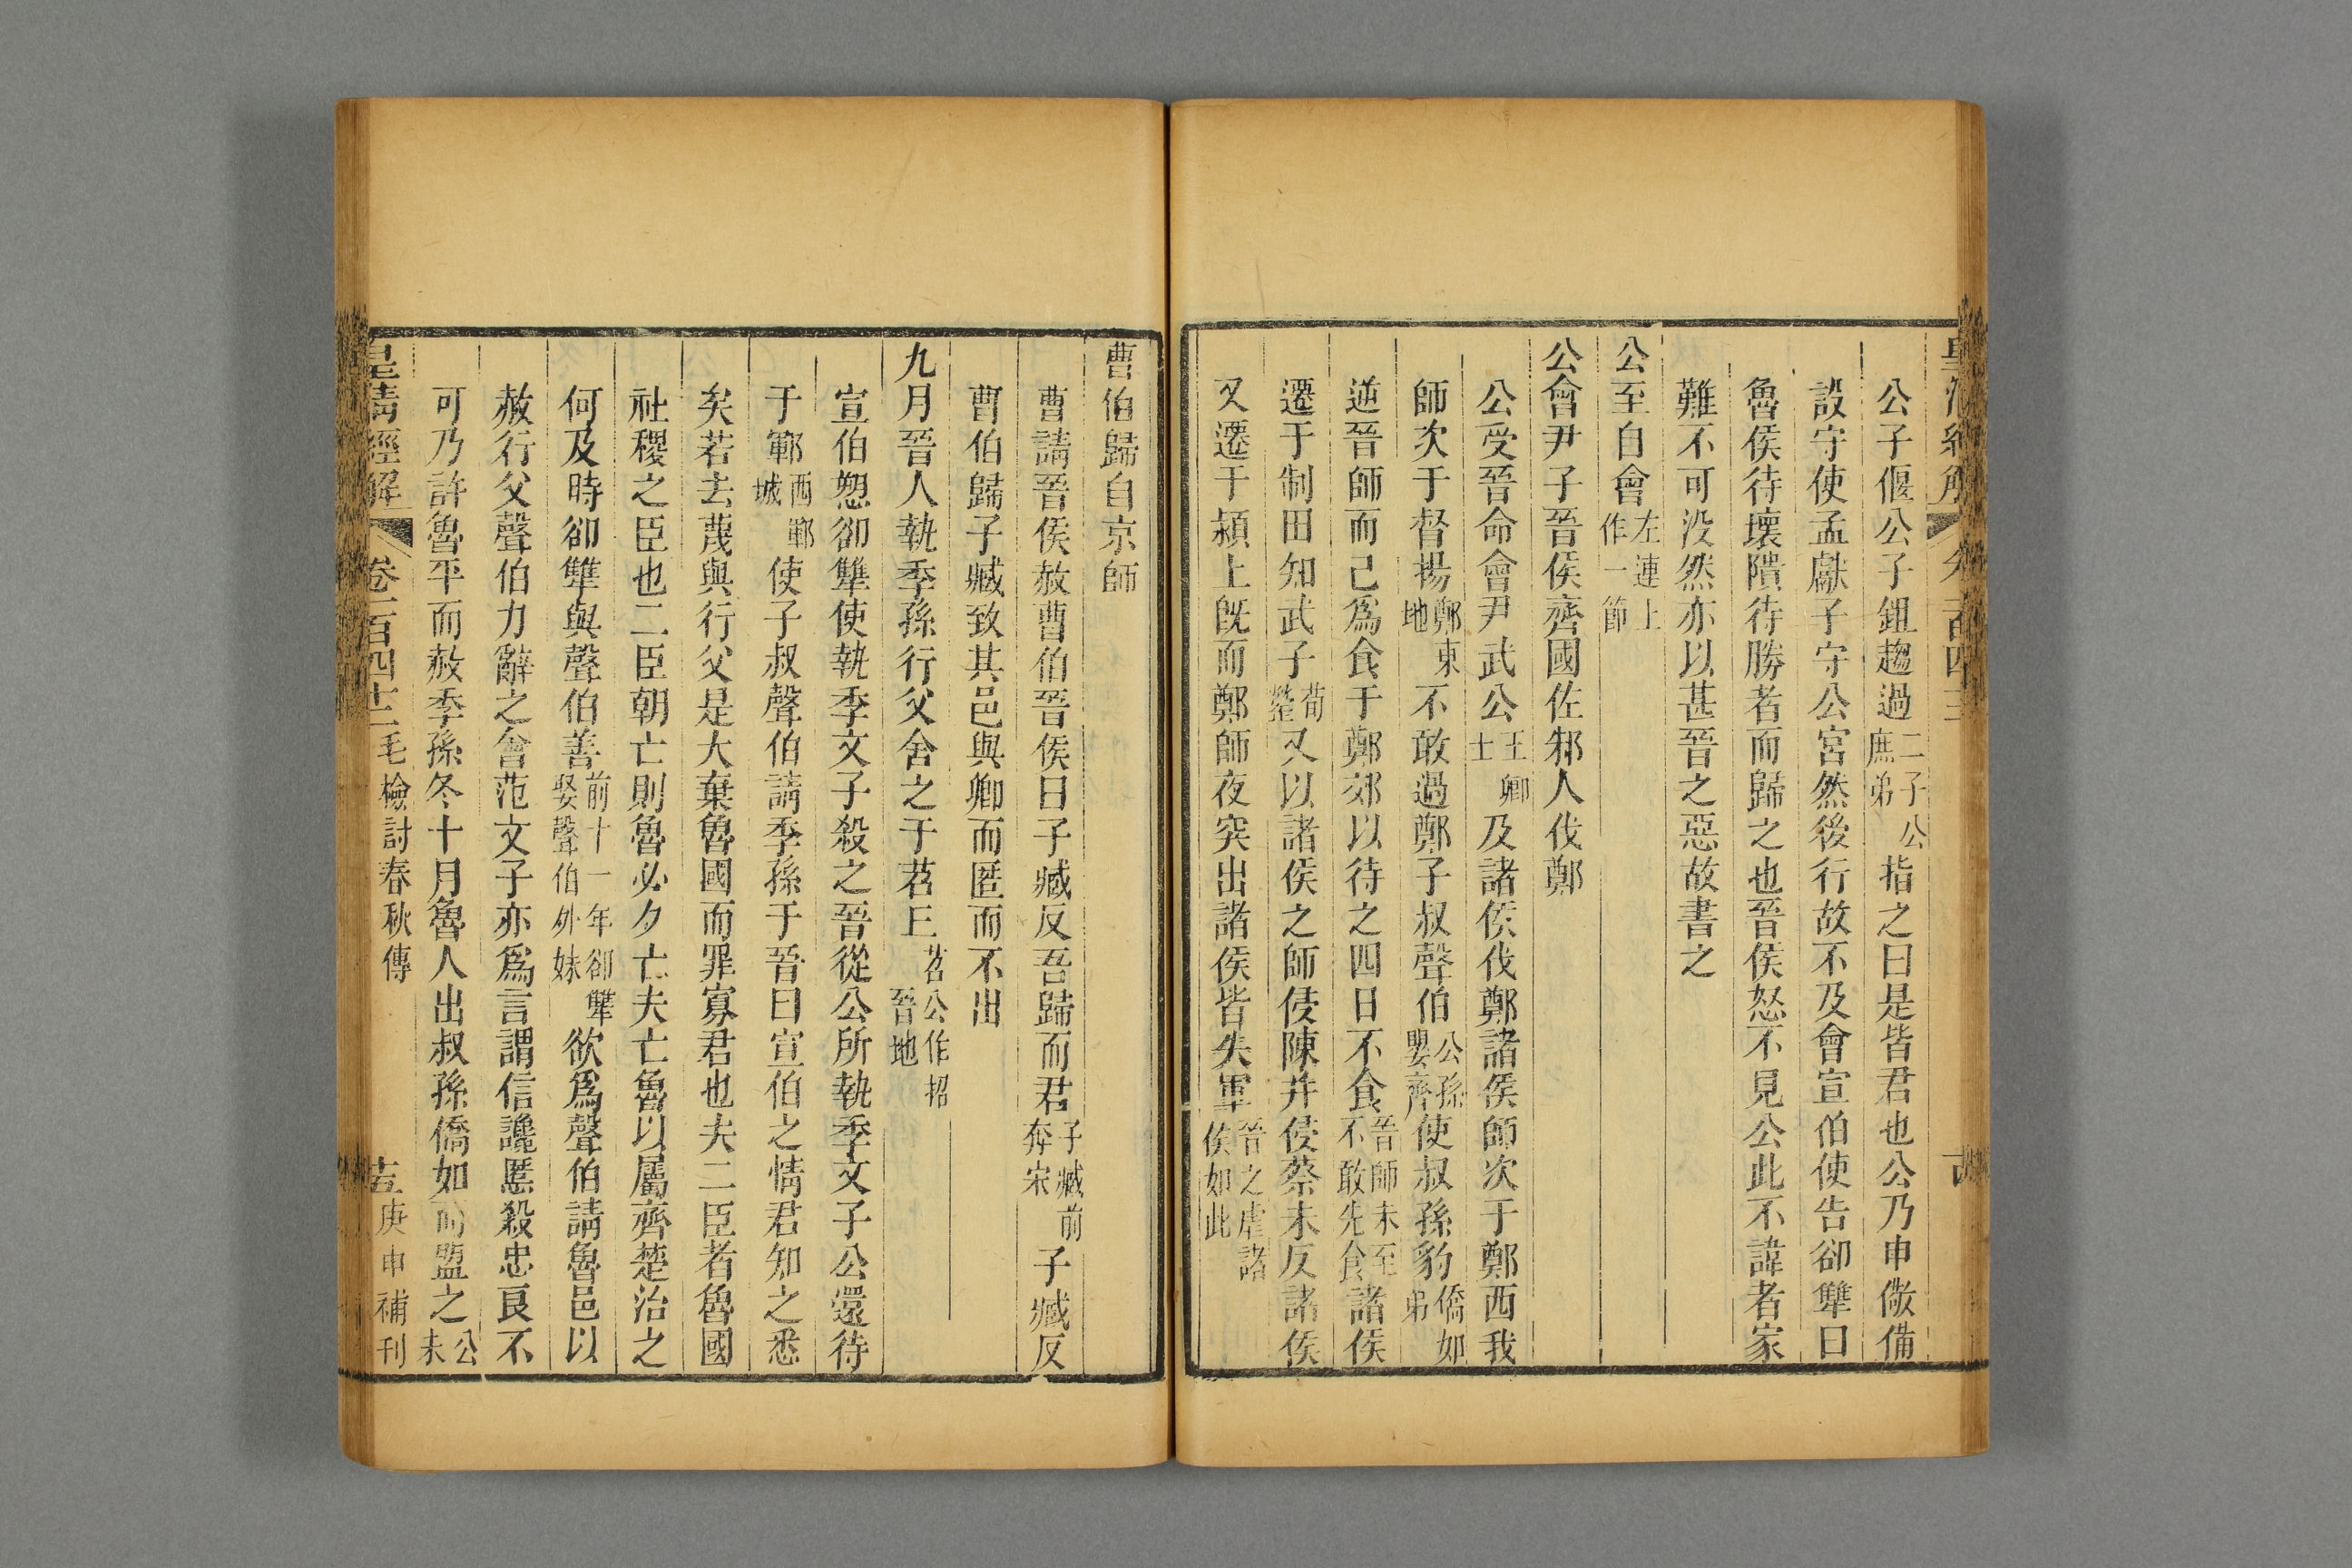 公子偃公子鉏趨過二子公庶弟指之曰是皆君也公乃申儆備
設守使孟獻子守公宮然後行故不及會宣伯使告郤犨曰
魯侯待壞隤待勝者而歸之也晉侯怒不見公此不諱者家
難不可没然亦以甚晉之惡故書之
公至自會左連上作一節
公會尹子晉侯齊國佐邾人伐鄭
公受晉命會尹武公王卿士及諸侯伐鄭諸侯師次于鄭西我
師次于督揚鄭東地不敢過鄭子叔聲伯公孫嬰齊使叔孫豹僑如弟
逆晉師而己爲食于鄭郊以待之四日不食晉師未至不敢先食諸侯
遷于制田知武子荀罃又以諸侯之師侵陳并侵蔡未反諸侯
又遷于潁上旣而鄭師夜突出諸侯皆失軍晉之虐諸侯如此
曹伯歸自京師
曹請晉侯赦曹伯晉侯曰子臧反吾歸而君子臧前奔宋子臧反
曹伯歸子臧致其邑與卿而匿而不出
九月晉人執季孫行父舍之于苕丘苕公作招晉地
宣伯愬郤犨使執季文子殺之晉從公所執季文子公還待
于鄆西鄆城使子叔聲伯請季孫于晉曰宣伯之情君知之悉
矣若去蔑與行父是大棄魯國而罪寡君也夫二臣者魯國
社稷之臣也二臣朝亡則魯必夕亡夫亡魯以屬齊楚治之
何及時郤犨與聲伯善前十一年郤犨娶聲伯外妹欲爲聲伯請魯邑以
赦行父聲伯力辭之會范文子亦爲言謂信讒慝殺忠良不
可乃許魯平而赦季孫冬十月魯人出叔孫僑如而盟之公未
皇清經解 卷一百四十二毛檢討春秋傳 庚申補刊